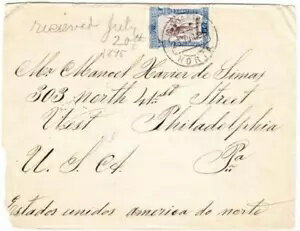 received July
20th
1895
HORTA
Mr Manoel Xavier de Simas
303 North 41st Street
West Philadelphia
U. S. A. Pa
Estados unidos america do norte